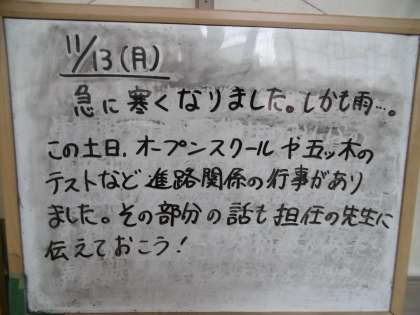 11/13(月)
急に寒くなりました。しかも雨…。
この土日、オープンスクールや五ッ木の
テストなど進路関係の行事があり
ました。その部分の話も担任の先生に
伝えておこう!